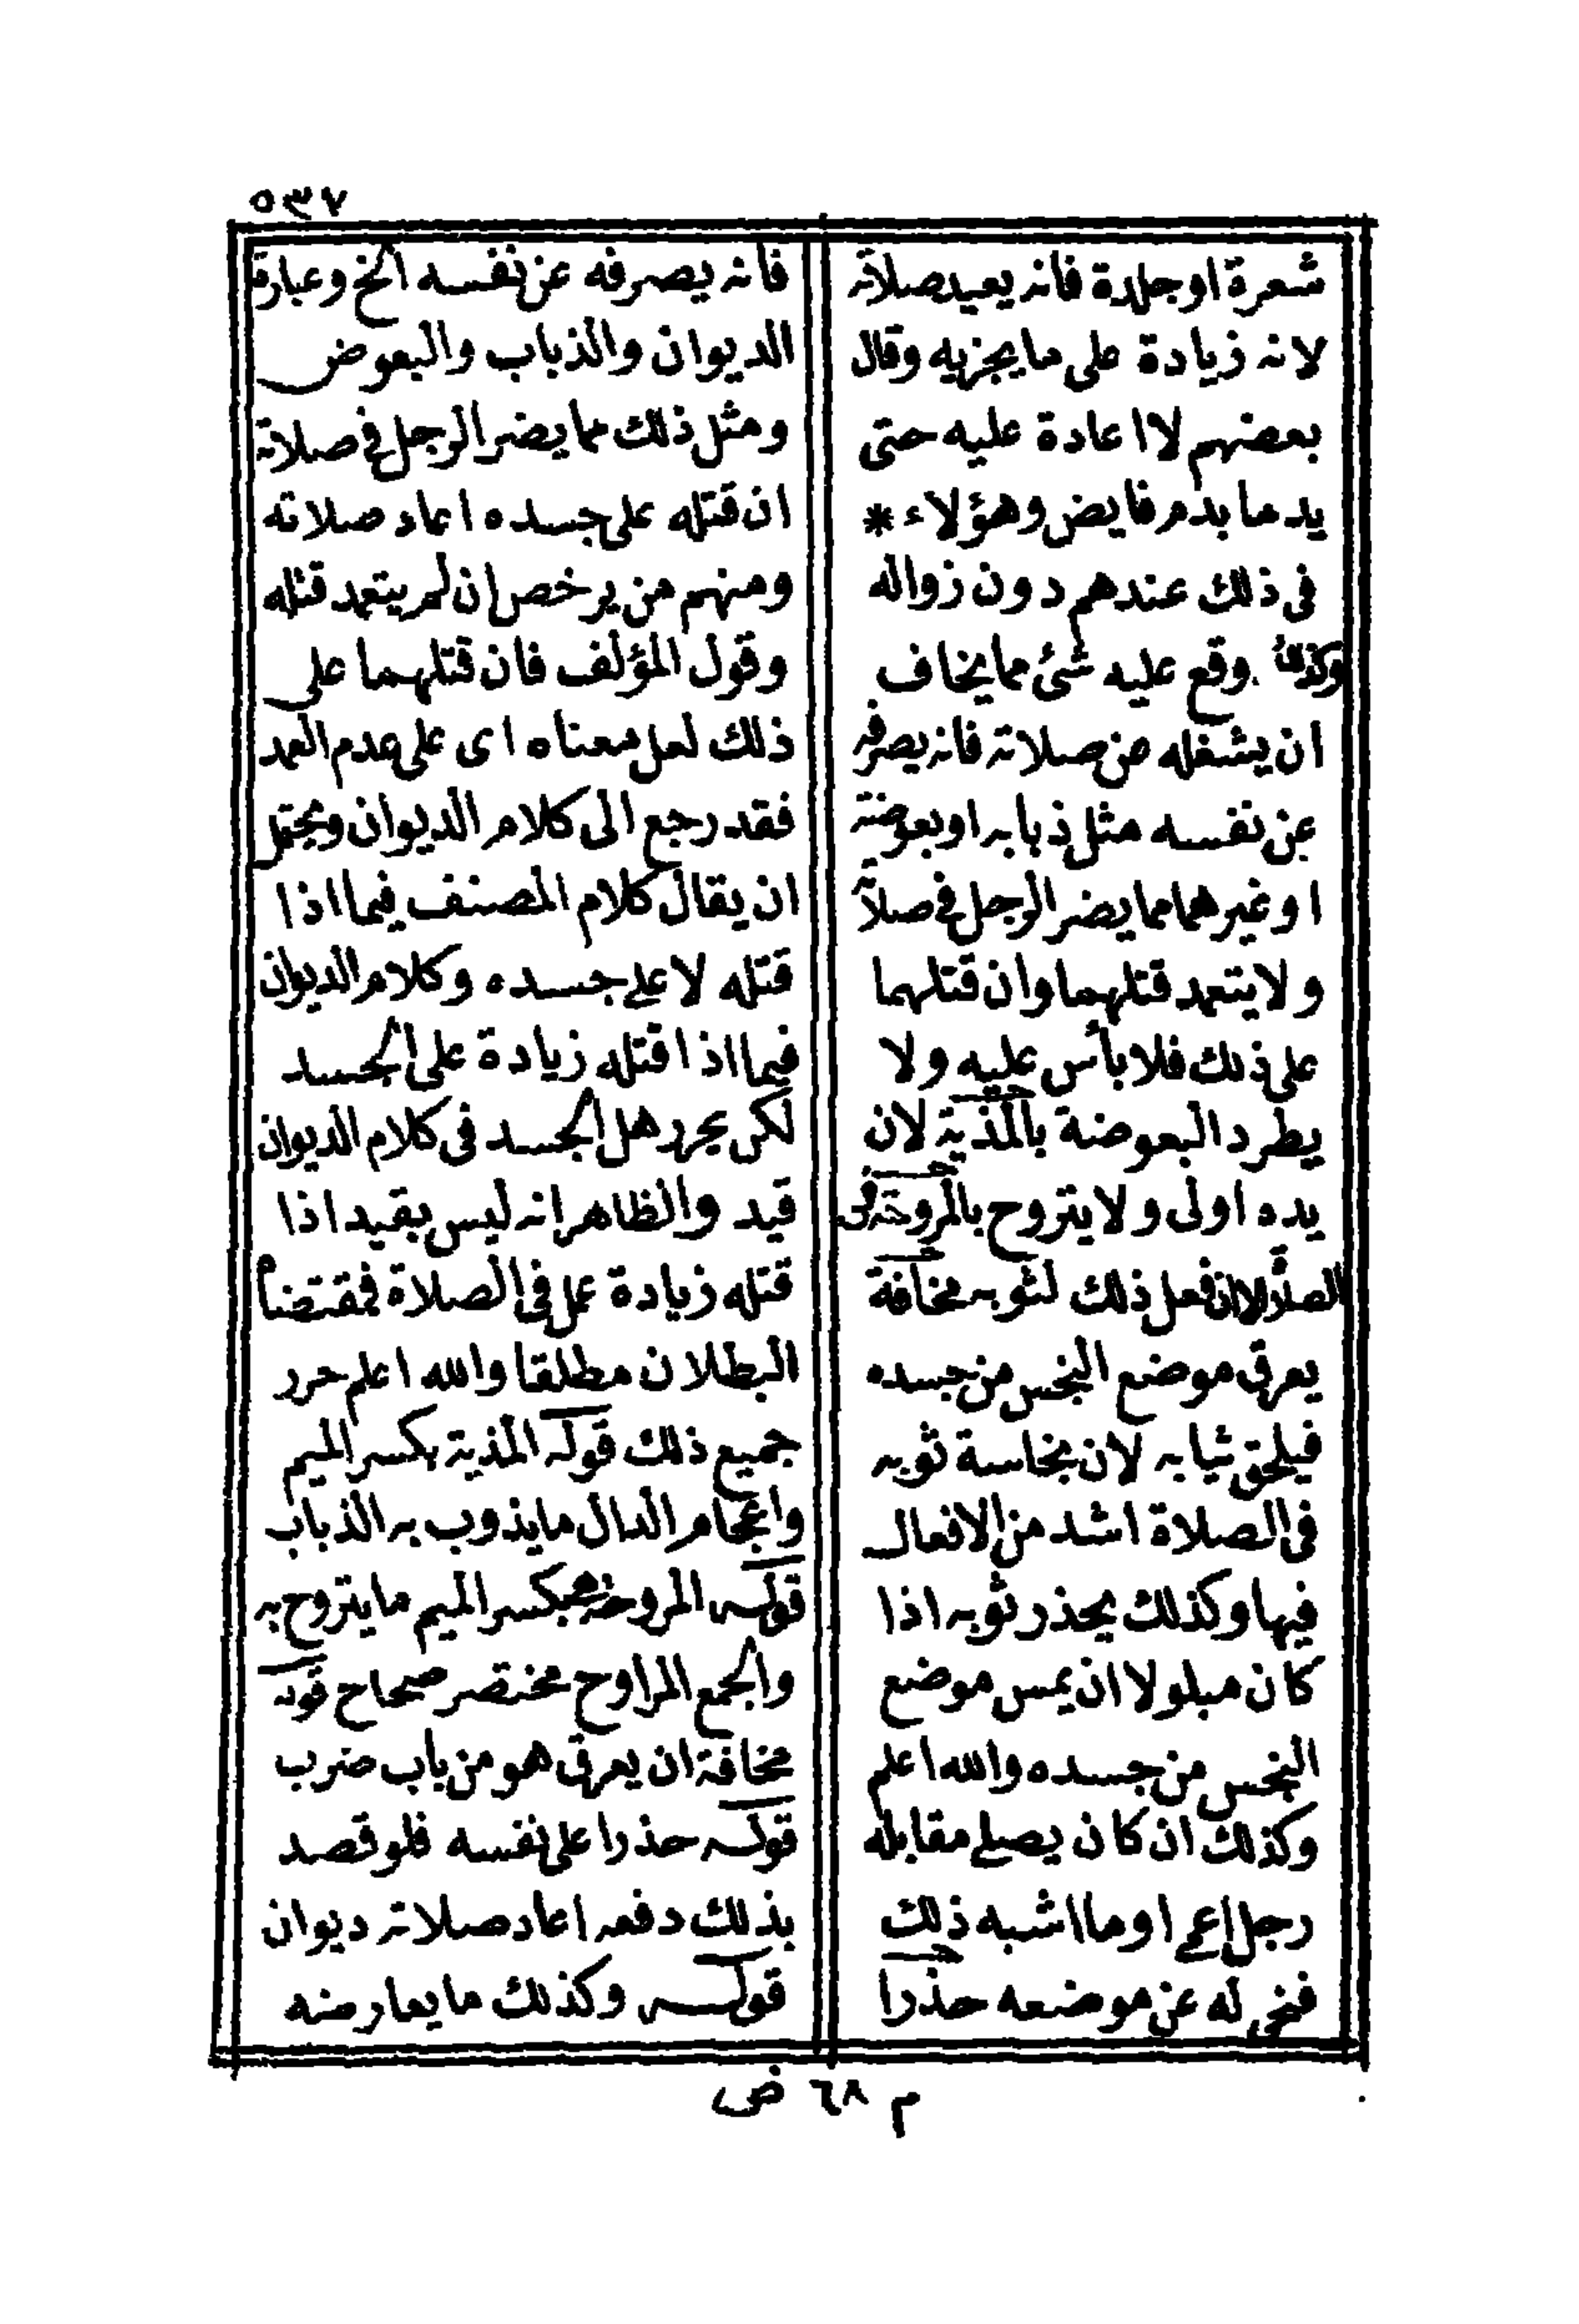 ٥٣٧
شعرة او جلدة فانه يعيد صلاته
لانه زيادة على ما يجزيه وقال
بعضهم لا اعادة عليه حتى
يدما بدم فايض وهؤلاء *
فى ذلك عندهم دون زواله
وكذلك وقع عليه شئ مما يخاف
ان يشغله عن صلاته فانه يصرفه
عن نفسه مثل ذبابه او بعوضته
او غيرهما مما يضر الرجل فى صلاته
ولا يتعمد قتلهما وان قتلهما
على ذلك فلا بأس عليه ولا
يطرد البعوضة بالمذبة لان
يده اولى ولا يتروح بالمروحة فى
الصلاة الا ان فعل ذلك لثوبه مخافة
يعرق موضع النجس من جسده
فيلحق ثيابه لان نجاسة ثوبه
فى الصلاة اشد من الافعال
فيها وكذلك يحذر ثوبه اذا
كان مبلولا ان يمس موضع
النجس من جسده والله اعلم
وكذلك ان كان يصلى مقابله
رجل اعمى او ما اشبه ذلك
فنحى له عن موضعه حذرا
فانه يصرفه عن نفسه الخ وعبارة
الديوان والذباب والبعوض
ومثل ذلك مما يضر الرجل فى صلاته
ان قتله على جسده اعاد صلاته
ومنهم من يرخص ان لم يتعمد قتله
وقول المؤلف فان قتلهما على
ذلك لعل معناه اى على عدم العمد
فقد رجع الى كلام الديوان ويحتمل
ان يقال كلام المصنف فيما اذا
قتله لا على جسده وكلام الديوان
فيما اذا قتله زيادة على الجسد
لكن يحرر هل الجسد فى كلام الديوان
قيد والظاهر انه ليس بقيد اذا
قتله زيادة عمل فى الصلاة فمقتضاه
البطلان مطلقا والله اعلم حرر
جميع ذلك قوله المذبة بكسر الميم
واعجام الدال ما يذوب به الذباب
قوله المروحة بكسر الميم ما يتروح به
والجمع المراوح مختصر صحاح قوله
مخافة ان يعرق هو من باب ضرب
قوله حذرا على نفسه فلو قصد
بذلك دفعه اعاد صلاته ديوان
قوله وكذلك ما يعارضه
م ٦٨ ض